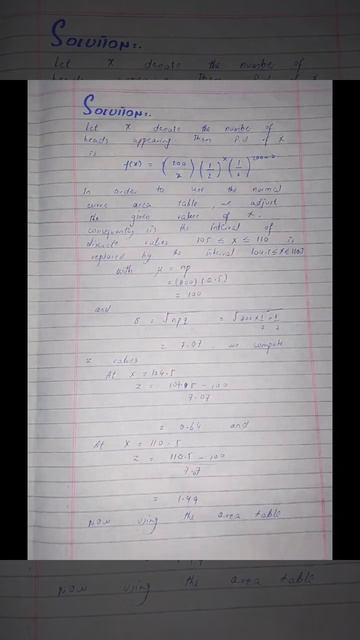 Solution:.
Let X denote the number of
Solution:.
Let X denote the number of
heads appearing Then P.d of X
is
f(x) = (200 x) (1/2)^x (1/2)^200-x
In order to use the normal
curve area table, we adjust
the given values of X.
consequently the interval of
discrete values 105 ≤ X ≤ 110 is
replaced by the interval 104.5 ≤ X ≤ 110.5
with μ = np
= (200) (0.5)
= 100
and
σ = √npq = √200 × 1/2 × 1/2
= 7.07 we compute
z values
At X = 104.5
z = 104.5 - 100
7.07
= 0.64 and
At X = 110.5
z = 110.5 - 100
7.07
= 1.49
now using the area table
now using the area table